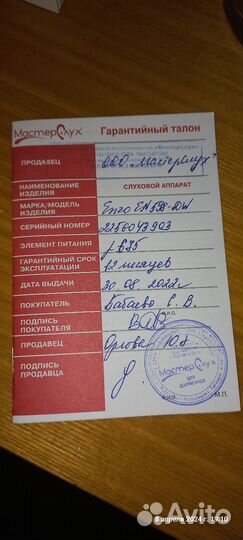 МастерСлух Гарантийный талон
«МастерСлух»
ПРОДАВЕЦ ООО „МастерСлух"
НАИМЕНОВАНИЕ
ИЗДЕЛИЯ
СЛУХОВОЙ АППАРАТ
МАРКА/МОДЕЛЬ
ИЗДЕЛИЯ
Enzo EN598-DW
СЕРИЙНЫЙ НОМЕР 2250043903
ЭЛЕМЕНТ ПИТАНИЯ
ГАРАНТИЙНЫЙ СРОК
ЭКСПЛУАТАЦИИ
12 месяцев
ДАТА ВЫДАЧИ 30.08.2022г
ПОКУПАТЕЛЬ С. В.
Ф.И.О.
ПОДПИСЬ
ПОКУПАТЕЛЯ
ПРОДАВЕЦ Орлова
ПОДПИСЬ
ПРОДАВЦА
МастерСлух
для
документов
Ф.И.О. М.П.
8 апреля 2024 г. 19:10
Avito